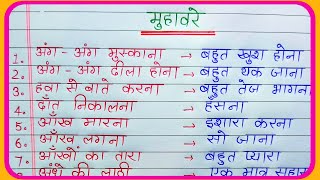 मुहावरे
1. अंग - अंग मुस्काना → बहुत खुश होना
2. अंग - अंग ढीला होना → बहुत थक जाना
3. हवा से बातें करना → बहुत तेज भागना
4. दाँत निकालना → हँसना
5. आँख मारना → इशारा करना
6. आँख लगना → सो जाना
7. आँखों का तारा → बहुत प्यारा
8. अंधे की लाठी → एक मात्र सहारा